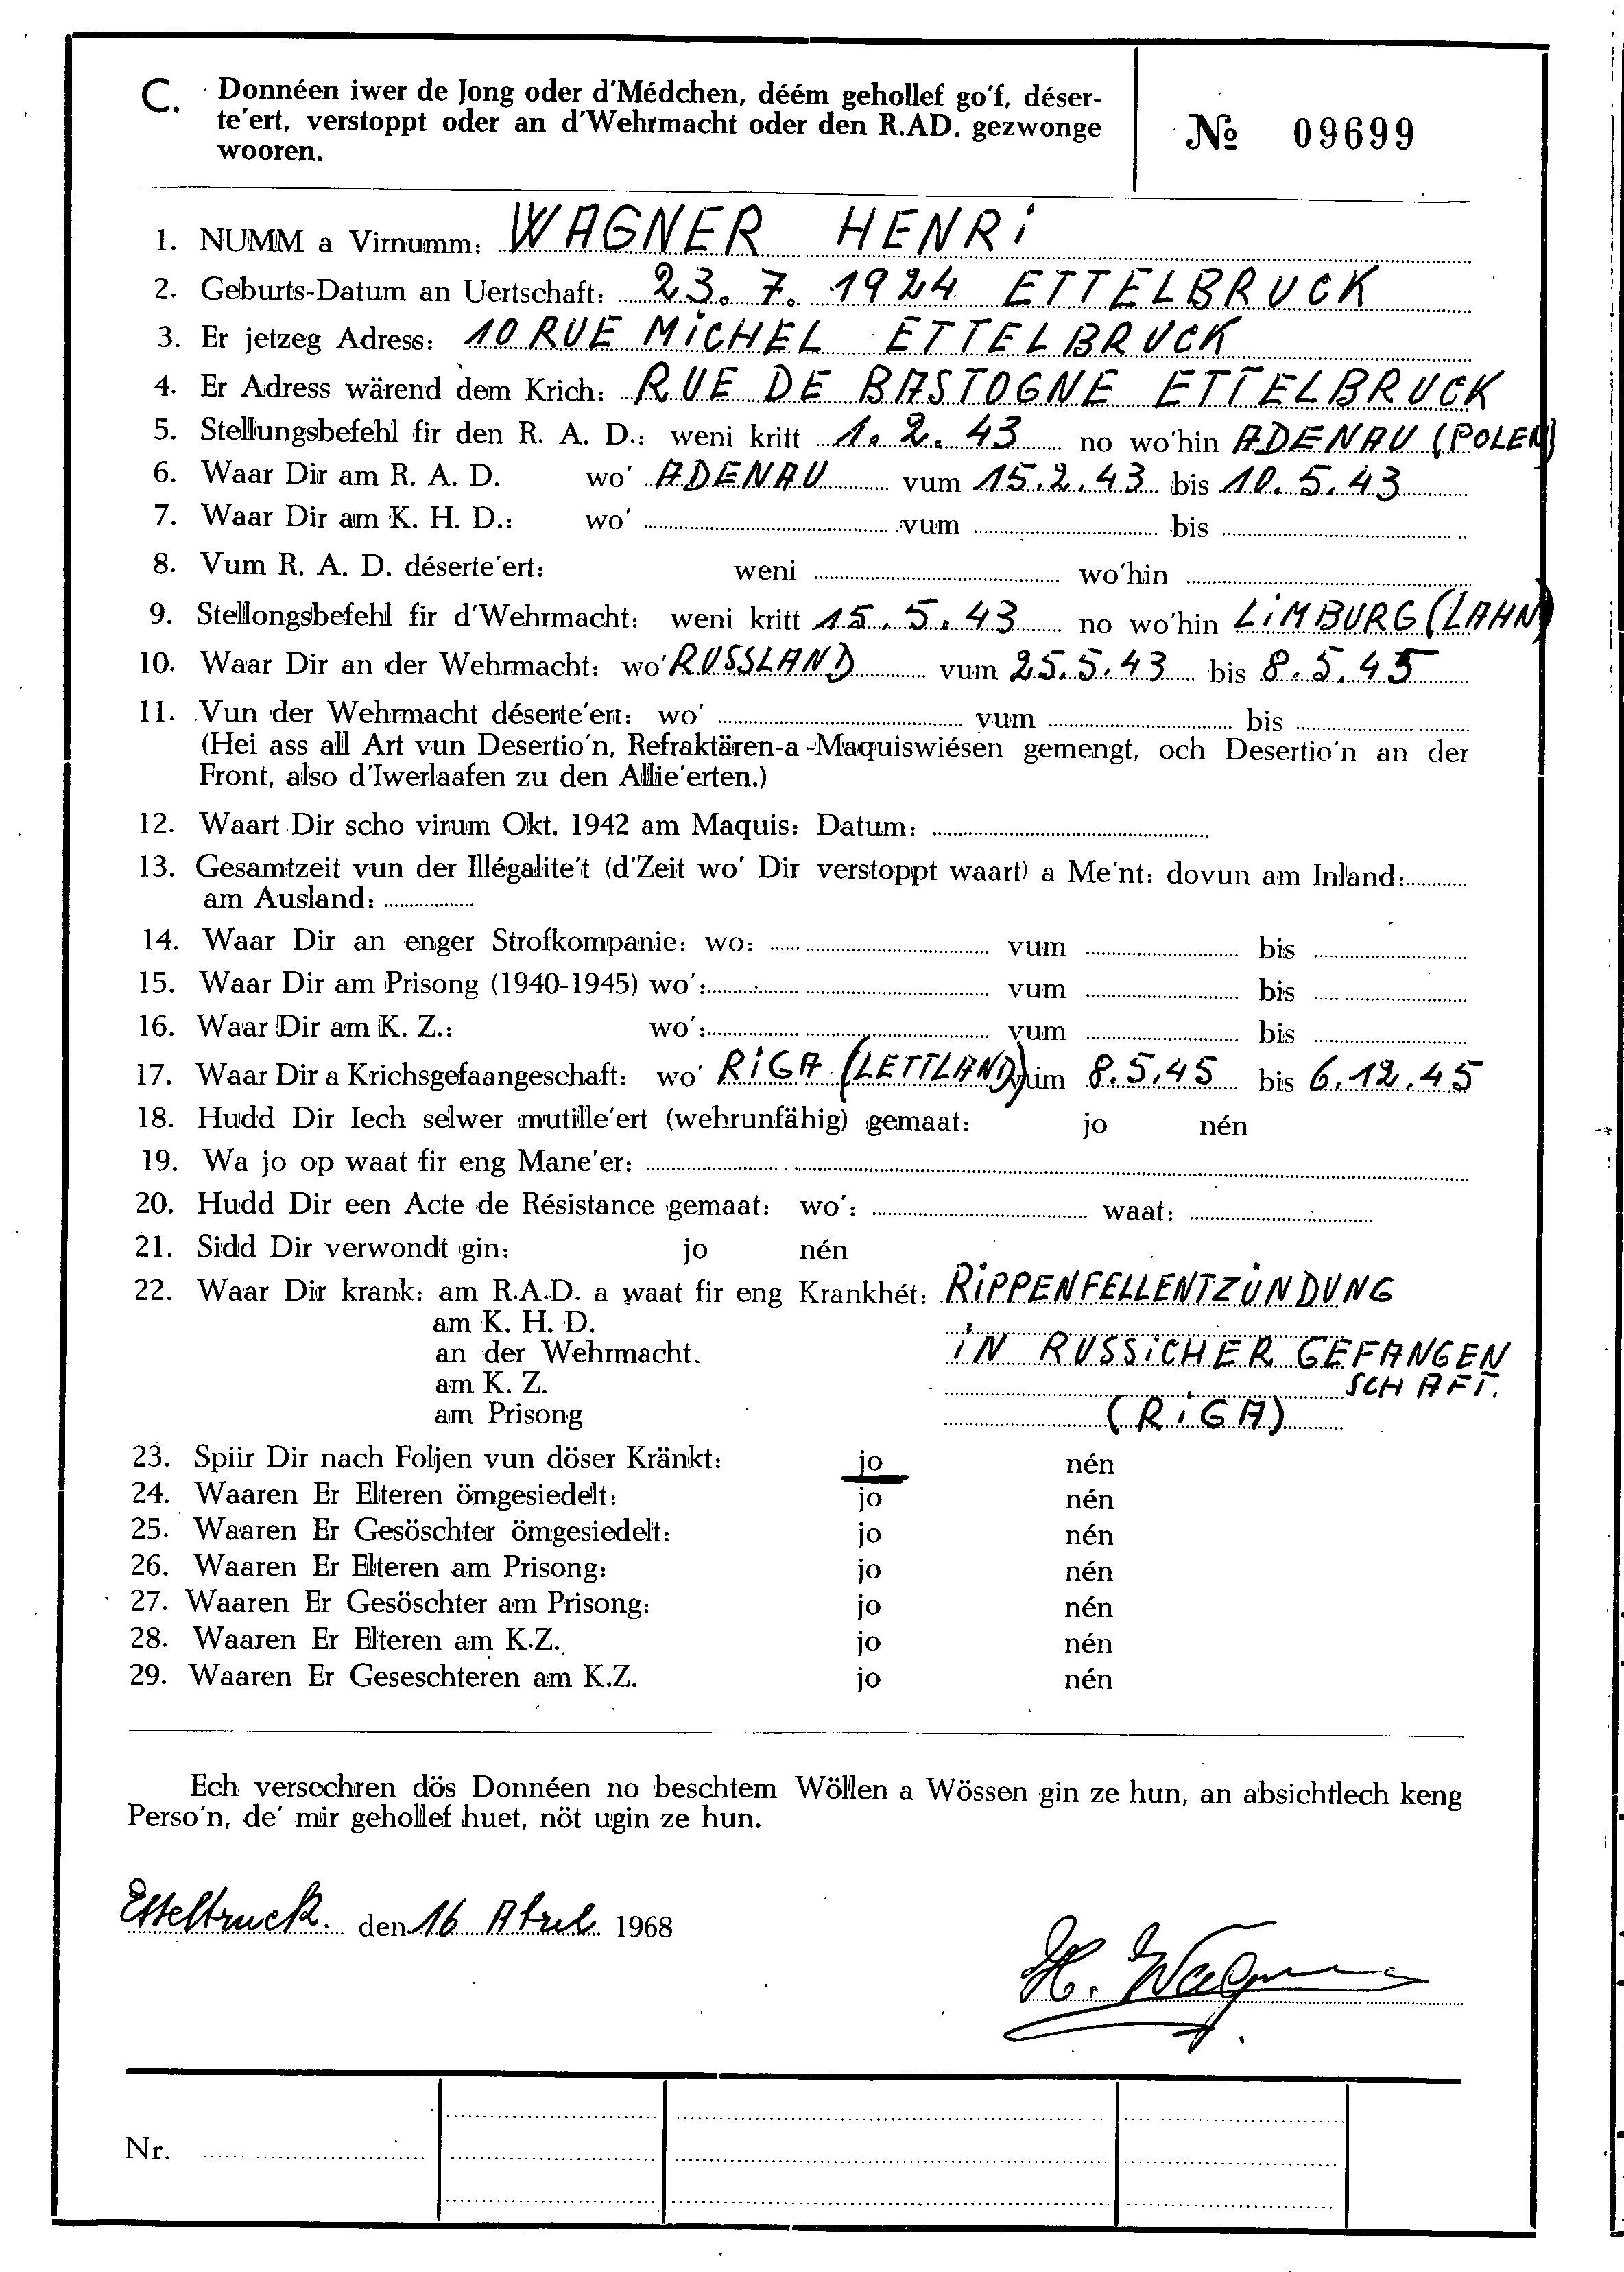 C. Donnéen iwer de Jong oder d'Médchen, déém gehollef go'f, déser-
te'ert, verstoppt oder an d'Wehrmacht oder den R.AD. gezwonge
wooren.
№ 09699
1. NUMM a Virnumm: WAGNER HENRi
2. Geburts-Datum an Uertschaft: 23. 7. 1924 ETTELBRUCK
3. Er jetzeg Adress: 10 RUE MiCHEL ETTELBRUCK
4. Er Adress wärend dem Krich: RUE DE BASTOGNE ETTELBRUCK
5. Stellungsbefehl fir den R. A. D.: weni kritt 1. 2. 43 no wo'hin ADENAU (POLEN)
6. Waar Dir am R. A. D. wo' ADENAU vum 15.2.43 bis 10.5.43
7. Waar Dir am K. H. D.: wo' vum bis
8. Vum R. A. D. déserte'ert: weni wo'hin
9. Stellongsbefehl fir d'Wehrmacht: weni kritt 15. 5. 43 no wo'hin LiMBURG (LAHN)
10. Waar Dir an der Wehrmacht: wo' RUSSLAND vum 25.5.43 bis 8.5.45
11. Vun der Wehrmacht déserte'ert: wo' vum bis
(Hei ass all Art vun Desertio'n, Refraktären-a-Maquiswiésen gemengt, och Desertio'n an der
Front, also d'Iwerlaafen zu den Allie'erten.)
12. Waart Dir scho virum Okt. 1942 am Maquis: Datum:
13. Gesamtzeit vun der Illégalite't (d'Zeit wo' Dir verstoppt waart) a Me'nt: dovun am Inland:
am Ausland:
14. Waar Dir an enger Strofkompanie: wo: vum bis
15. Waar Dir am Prisong (1940-1945) wo': vum bis
16. Waar Dir am K. Z.: wo': vum bis
17. Waar Dir a Krichsgefaangeschaft: wo' RiGA (LETTLAND) vum 8.5.45 bis 6.12.45
18. Hudd Dir Iech selwer mutille'ert (wehrunfähig) gemaat: jo nén
19. Wa jo op waat fir eng Mane'er:
20. Hudd Dir een Acte de Résistance gemaat: wo': waat:
21. Sidd Dir verwondt gin: jo nén
22. Waar Dir krank: am R.A.D. a waat fir eng Krankhét: RiPPENFELLENTZÜNDUNG
am K. H. D.
an der Wehrmacht. iN RUSSiCHER GEFANGEN
am K. Z. SCHAFT.
am Prisong (RiGA)
23. Spiir Dir nach Foljen vun döser Kränkt: jo nén
24. Waaren Er Elteren ömgesiedelt: jo nén
25. Waaren Er Gesöschter ömgesiedelt: jo nén
26. Waaren Er Elteren am Prisong: jo nén
27. Waaren Er Gesöschter am Prisong: jo nén
28. Waaren Er Elteren am K.Z. jo nén
29. Waaren Er Geseschteren am K.Z. jo nén
Ech versechren dös Donnéen no beschtem Wöllen a Wössen gin ze hun, an absichtlech keng
Perso'n, de' mir gehollef huet, nöt ugin ze hun.
Ettelbruck den 16 Abril 1968
H. Wagner
Nr.